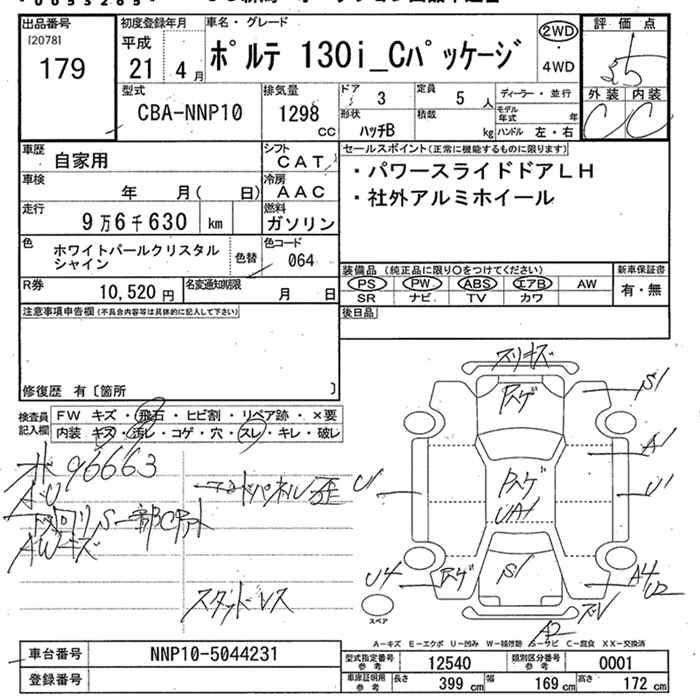 出品番号
[2078]
179
初度登録年月
平成
21 4月
車名・グレード
ポルテ 130i_Cパッケージ
2WD
・
4WD
評価点
3.5
外装 内装
C C
型式
CBA-NNP10
排気量
1298
CC
ドア 3
定員 5 人
形状 ハッチB
積載 kg
ディーラー・並行
モデル年式 年
ハンドル 左・右
車歴
自家用
シフト
CAT
車検
年 月( 日)
冷房
AAC
走行
9万6千630 km
燃料
ガソリン
色
ホワイトパールクリスタル
シャイン
色替
色コード
064
R券
10,520 円
名変通知期限
月 日
セールスポイント(正常に機能するものに限ります)
・パワースライドドアLH
・社外アルミホイール
装備品(純正品に限り○をつけてください)
PS PW ABS エアB AW
SR ナビ TV カワ
新車保証書
有・無
後日品
注意事項申告欄(不具合内容等は具体的に記入して下さい)
修復歴 有〔箇所 〕
検査員
記入欄
FW キズ・飛石・ヒビ割・リペア跡・×要
内装 キズ・汚レ・コゲ・穴・スレ・キレ・破レ
96663
AWキズ
スタッドレス
スリキズ
スゲ
S1
A1
U1
U1
UA1
S1
U4
A4
U2
A2
スペア
A-キズ E-エクボ U-凹み W-補修跡 S-サビ C-腐食 XX-交換済
車台番号
NNP10-5044231
登録番号
型式指定番号
参考
12540
類別区分番号
参考
0001
車庫証明用
参考
長さ 399 cm
幅 169 cm
高さ 172 cm